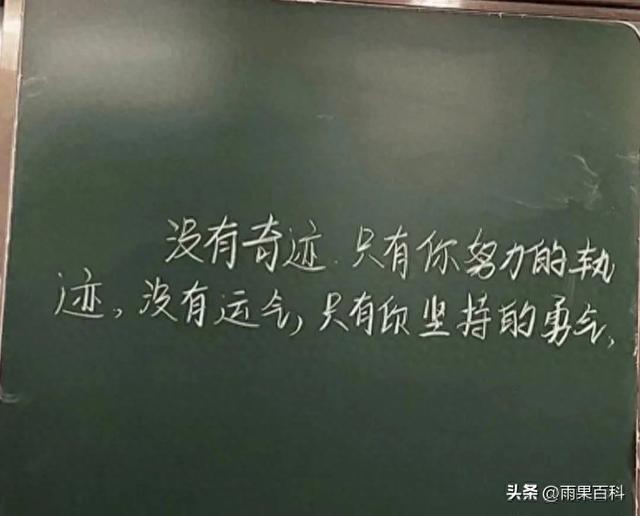 没有奇迹.只有你努力的轨
迹,没有运气,只有你坚持的勇气,
头条@雨果百科